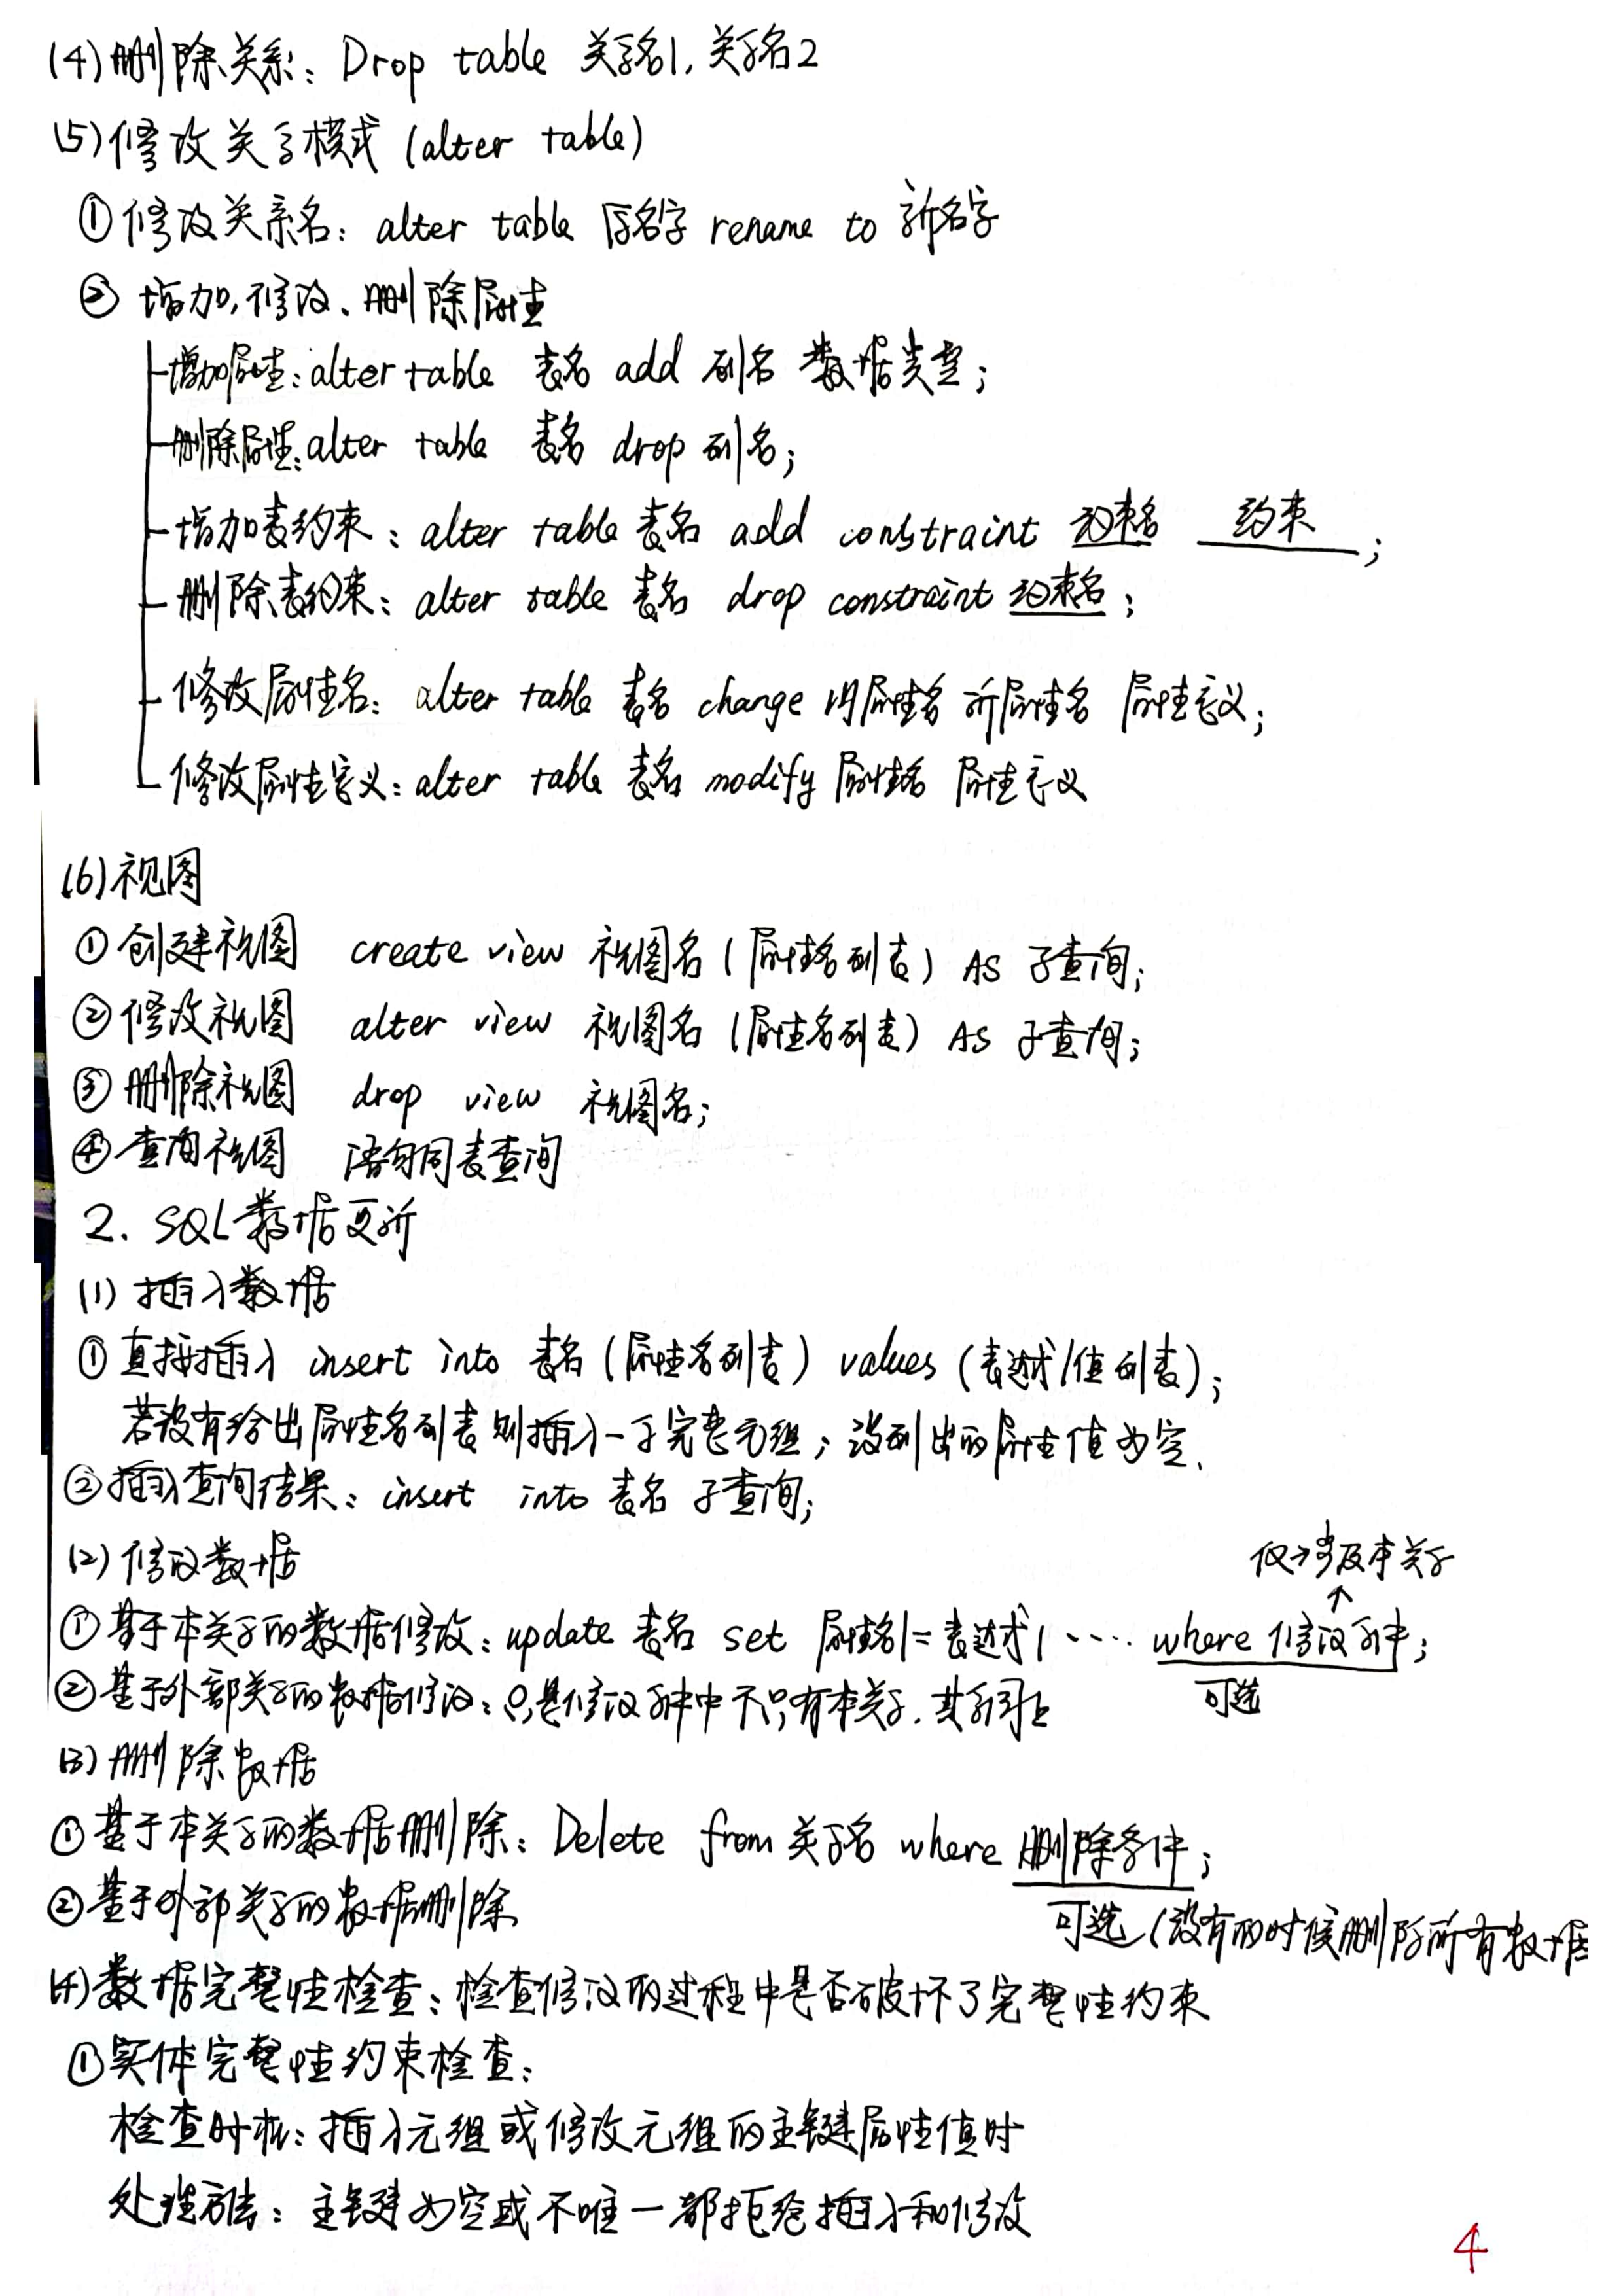 (4)删除关系：Drop table 关系名1,关系名2
(5)修改关系模式(alter table)
①修改关系名：alter table 原名字 rename to 新名字
② 增加,修改、删除属性
增加属性：alter table 表名 add 列名 数据类型；
删除属性：alter table 表名 drop 列名；
增加表约束：alter table 表名 add constraint 约束名 约束；
删除表约束：alter table 表名 drop constraint 约束名；
修改属性名：alter table 表名 change 旧属性名 新属性名 属性定义；
修改属性定义：alter table 表名 modify 属性名 属性定义
(6)视图
①创建视图 create view 视图名(属性名列表) AS 子查询；
②修改视图 alter view 视图名(属性名列表) AS 子查询；
③删除视图 drop view 视图名；
④查询视图 语句同表查询
2. SQL数据更新
(1) 插入数据
①直接插入 insert into 表名(属性名列表) values (表达式/值列表)；
若没有给出属性名列表则插入一个完整元组；没列出的属性值为空.
②插入查询结果：insert into 表名 子查询；
(2) 修改数据
仅涉及本关系
①基于本关系的数据修改：update 表名 set 属性名1=表达式1 ···· where 修改条件；
可选
②基于外部关系的数据修改：只是修改条件中不只有本关系.其余同上
(3) 删除数据
①基于本关系的数据删除：Delete from 关系名 where 删除条件；
②基于外部关系的数据删除
可选(没有的时候删除所有数据
(4)数据完整性检查：检查修改的过程中是否破坏了完整性约束
①实体完整性约束检查：
检查时机：插入元组或修改元组的主键属性值时
处理方法：主键为空或不唯一都拒绝插入和修改
4